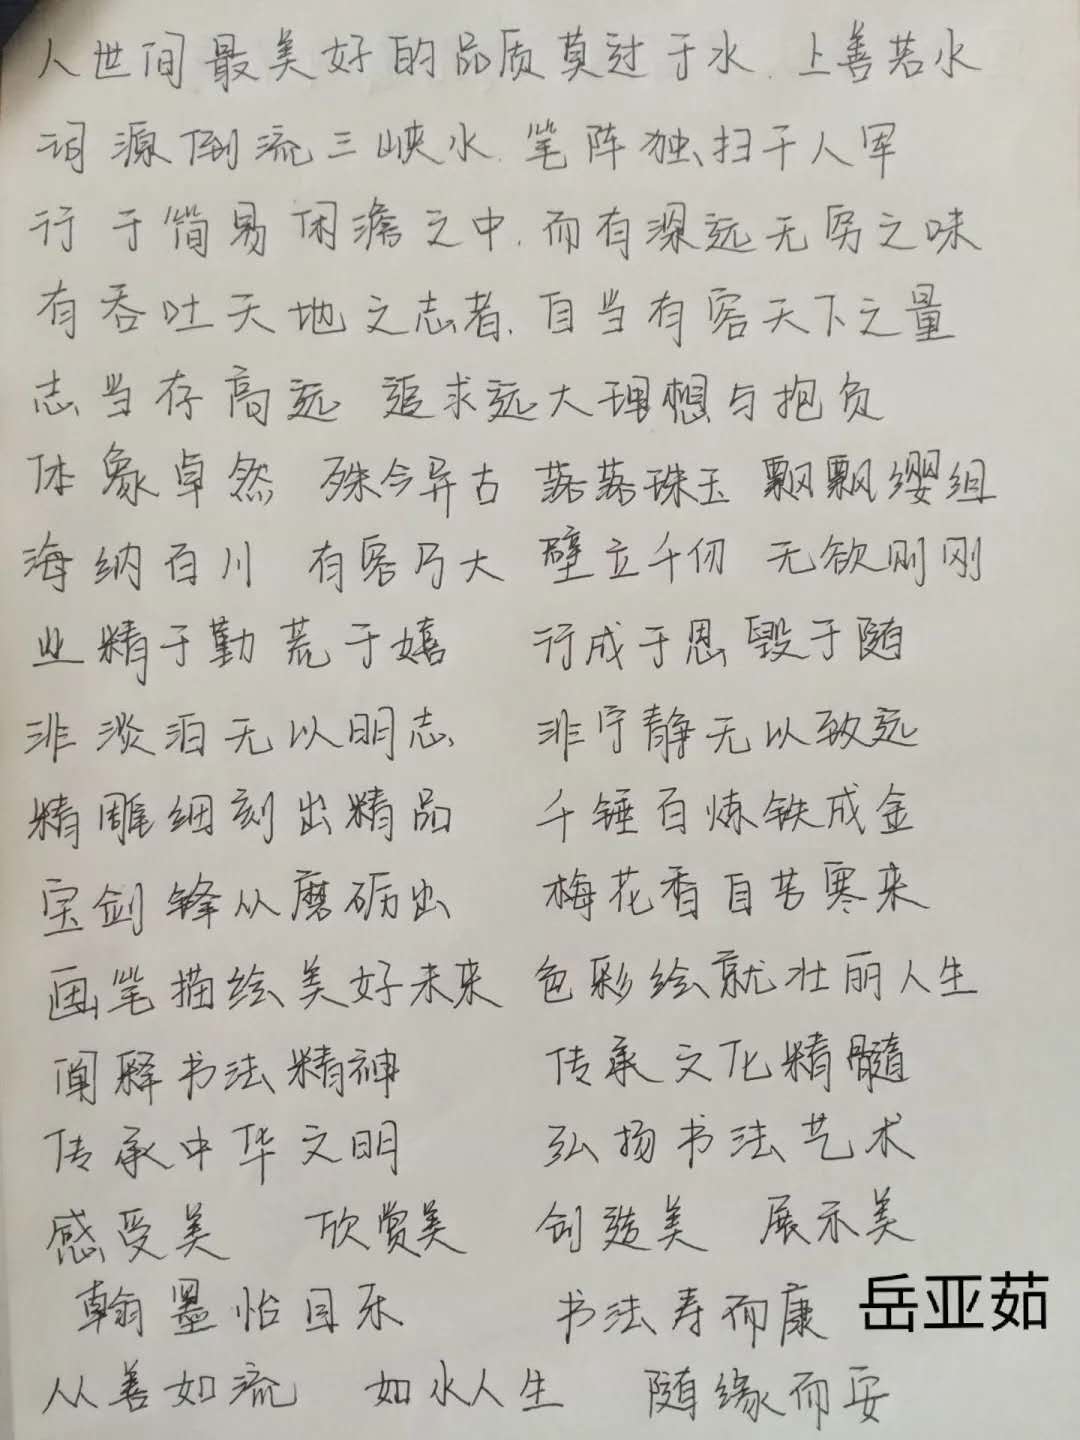 人世间最美好的品质莫过于水.上善若水
词源倒流三峡水.笔阵独扫千人军
行于简易闲澹之中.而有深远无穷之味
有吞吐天地之志者.自当有容天下之量
志当存高远 追求远大理想与抱负
体象卓然 殊今异古 落落珠玉 飘飘缨组
海纳百川 有容乃大 壁立千仞 无欲则刚
业精于勤荒于嬉 行成于思毁于随
非淡泊无以明志 非宁静无以致远
精雕细刻出精品 千锤百炼铁成金
宝剑锋从磨砺出 梅花香自苦寒来
画笔描绘美好未来 色彩绘就壮丽人生
阐释书法精神 传承文化精髓
传承中华文明 弘扬书法艺术
感受美 欣赏美 创造美 展示美
翰墨怡自乐 书法寿而康 岳亚茹
从善如流 如水人生 随缘而安